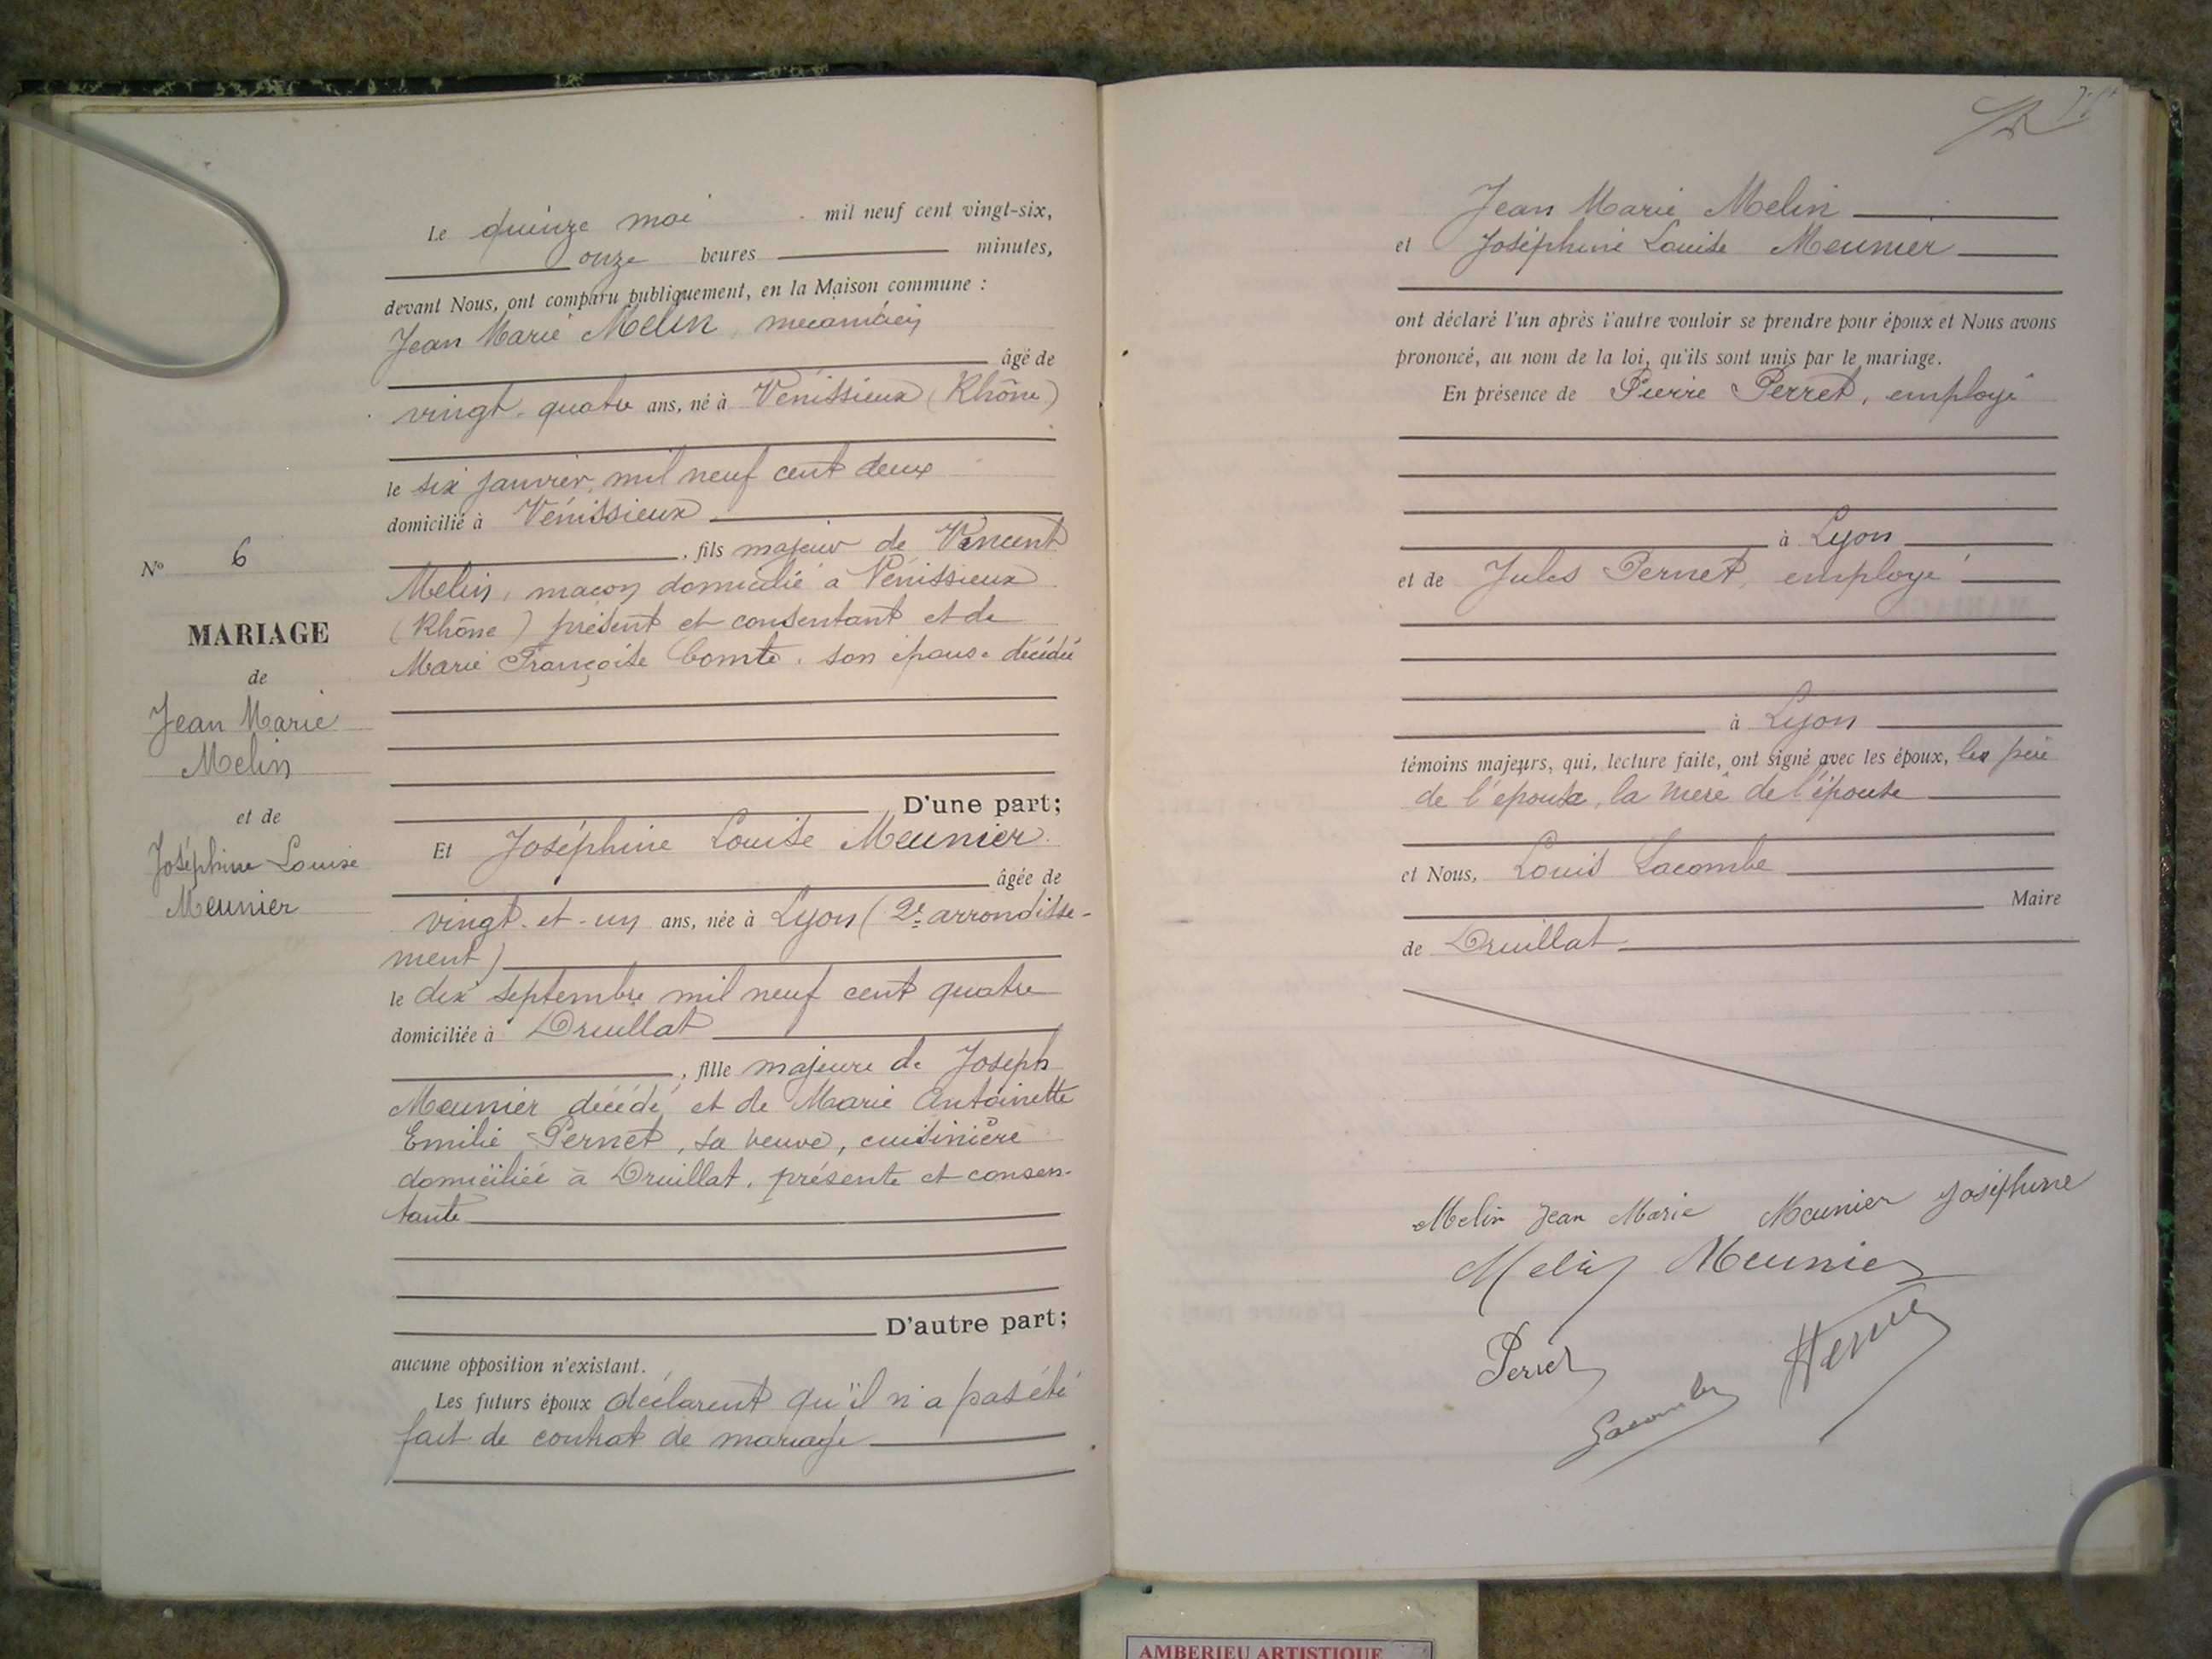 Le quinze mai mil neuf cent vingt-six,
onze heures minutes,
devant Nous, ont comparu publiquement, en la Maison commune :
Jean Marie Melin, mécanicien
âgé de
vingt-quatre ans, né à Vénissieux (Rhône)
le six janvier, mil neuf cent deux
domicilié à Vénissieux
, fils majeur de Vincent
Melin, maçon domicilié à Vénissieux
(Rhône) présent et consentant et de
Marie Françoise Comte, son épouse décédée
D'une part;
Et Joséphine Louise Meunier
âgée de
vingt-et-un ans, née à Lyon (2e arrondisse-
ment)
le dix septembre mil neuf cent quatre
domiciliée à Druillat
, fille majeure de Joseph
Meunier décédé et de Marie Antoinette
Emilie Pernet, sa veuve, cuisinière
domiciliée à Druillat, présente et consen-
tante
D'autre part;
aucune opposition n'existant.
Les futurs époux déclarent qu'il n'a pas été
fait de contrat de mariage
N° 6
MARIAGE
de
Jean Marie
Melin
et de
Joséphine Louise
Meunier
Jean Marie Melin
et Joséphine Louise Meunier
ont déclaré l'un après l'autre vouloir se prendre pour époux et Nous avons
prononcé, au nom de la loi, qu'ils sont unis par le mariage.
En présence de Pierre Perret, employé
à Lyon
et de Jules Pernet, employé
à Lyon
témoins majeurs, qui, lecture faite, ont signé avec les époux, les père
de l'époux, la mère de l'épouse
et Nous, Louis Lacombe
Maire
de Druillat
Melin Jean Marie Meunier Joséphine
Melin Meunier
Perret
Lacombe
AMBERIEU ARTISTIQUE